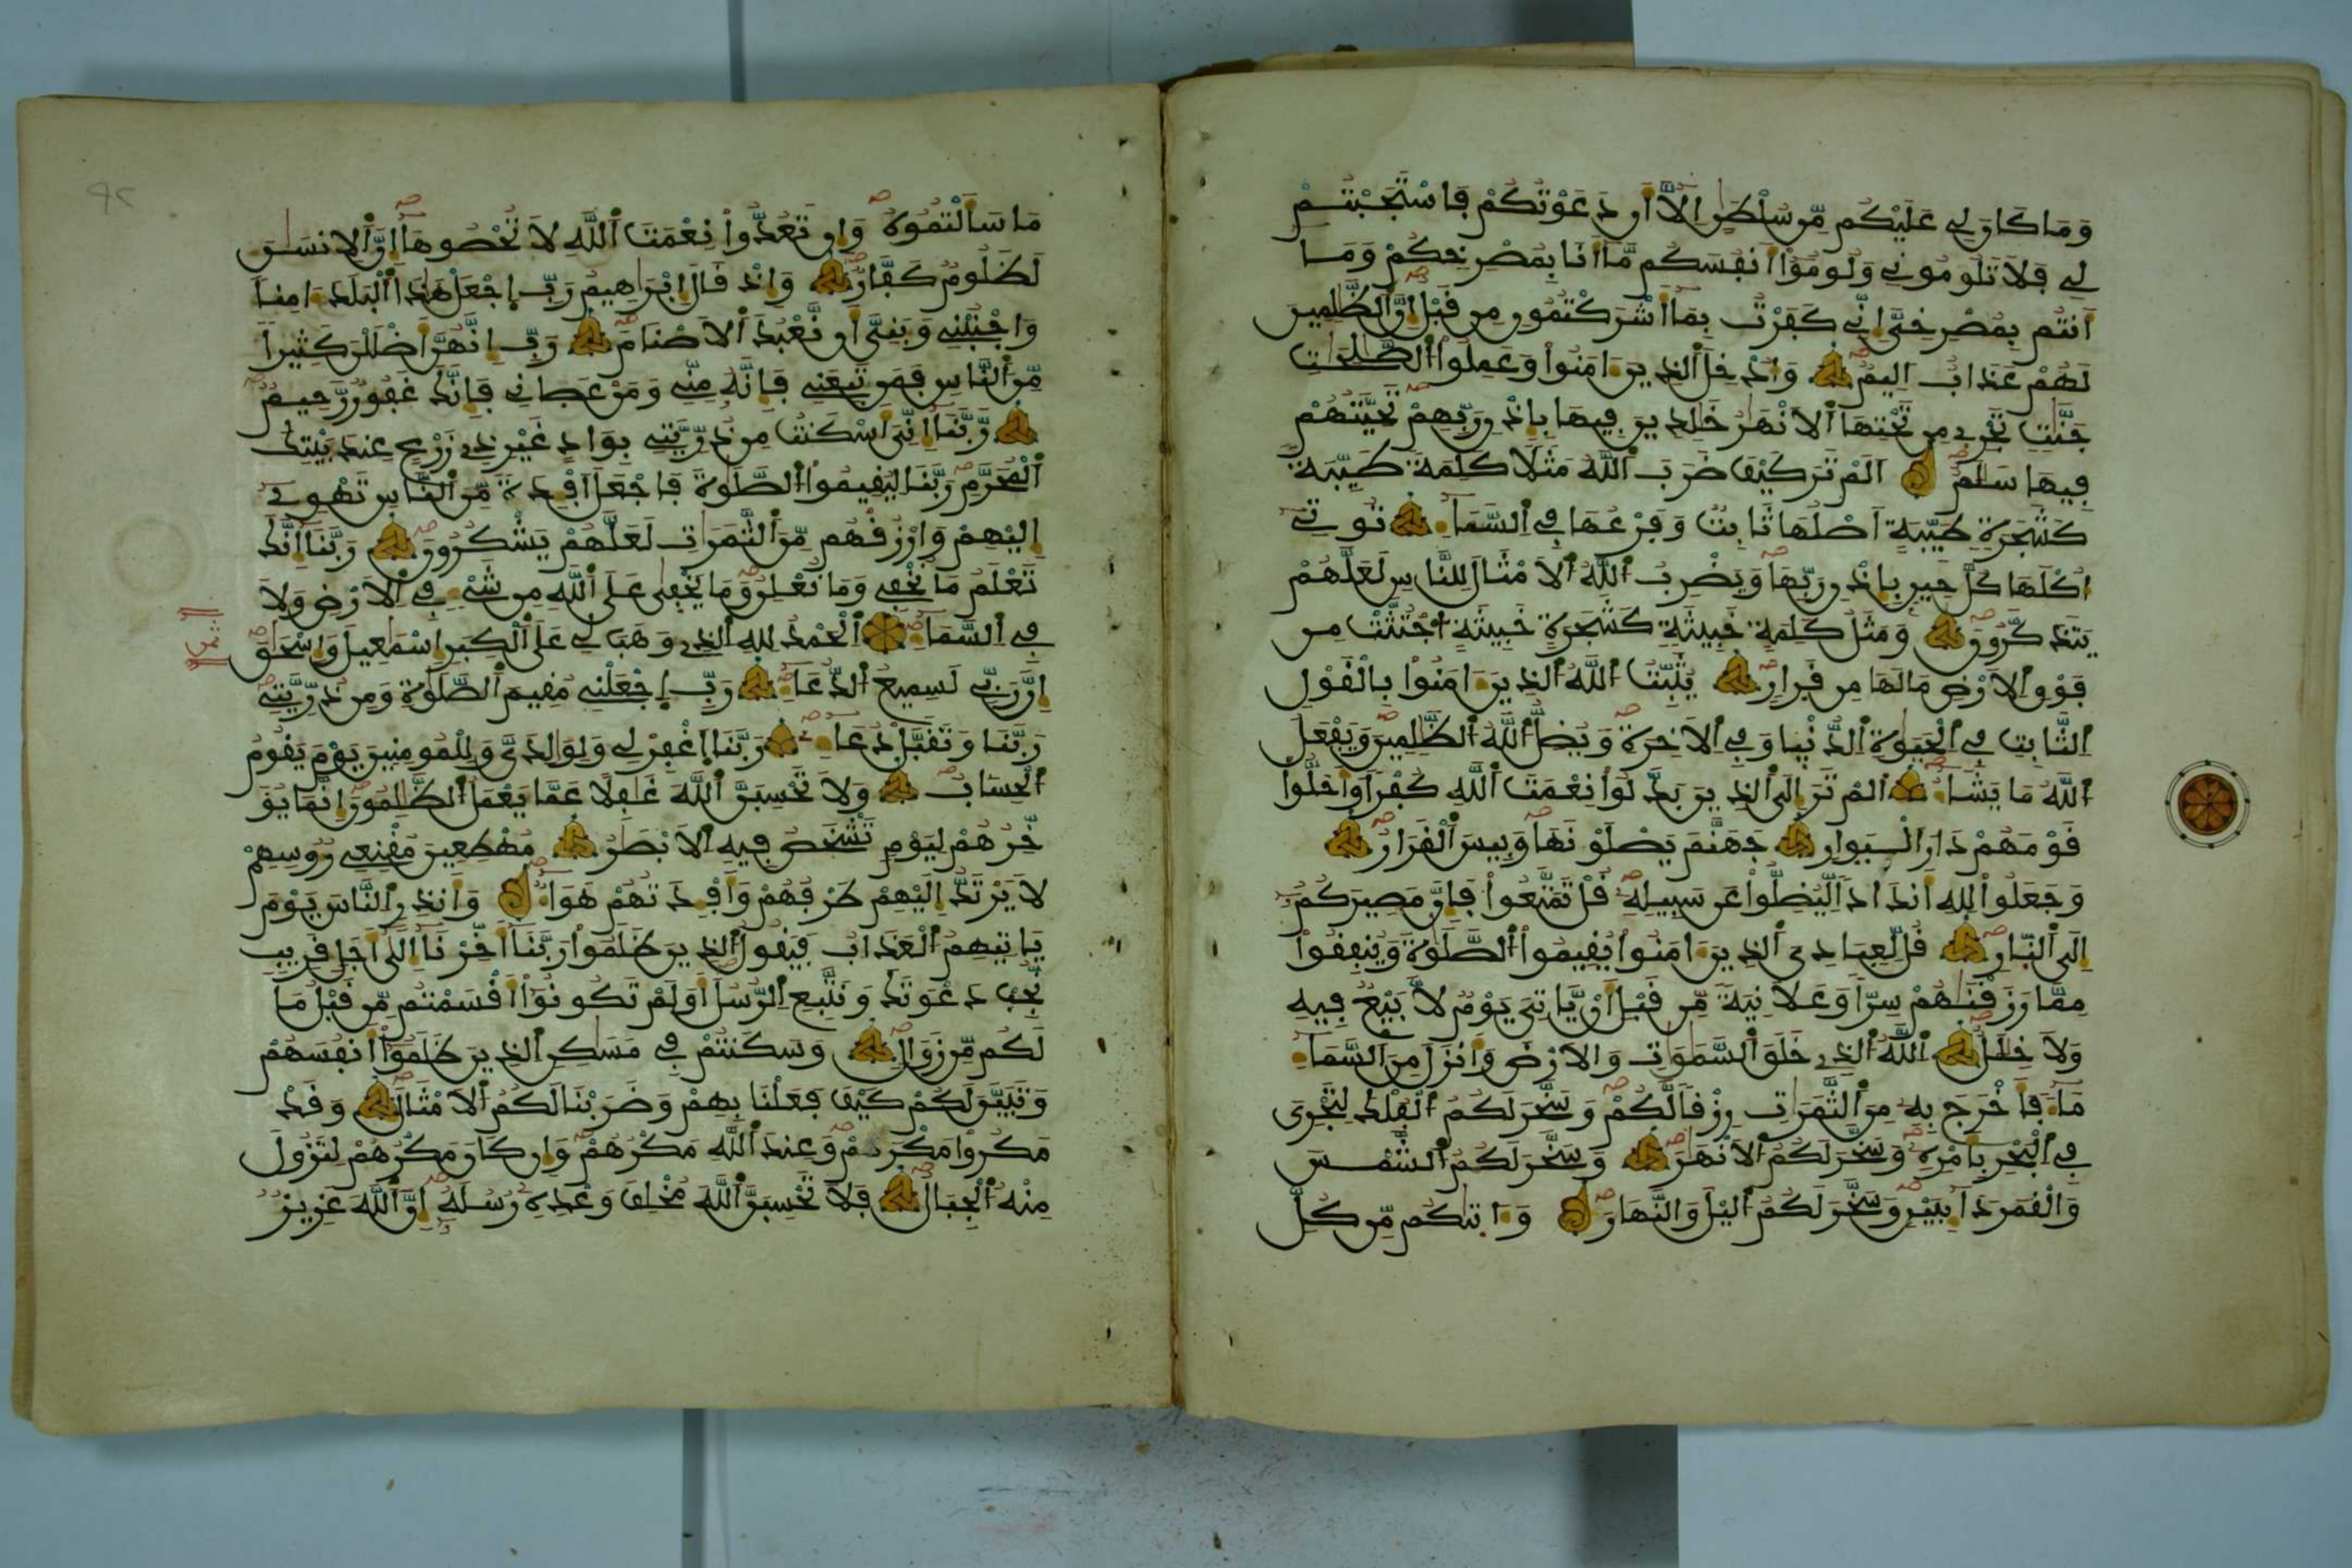 وَمَا كَانَ لِي عَلَيْكُم مِّن سُلْطَٰنٍ اِلَّا أَن دَعَوْتُكُمْ فَاسْتَجَبْتُمْ
لِي فَلَا تَلُومُونِي وَلُومُوٓا أَنفُسَكُم مَّا أَنَا بِمُصْرِخِكُمْ وَمَا
أَنتُم بِمُصْرِخِيَّ إِنِّي كَفَرْتُ بِمَا أَشْرَكْتُمُونِ مِن قَبْلُ إِنَّ ٱلظَّٰلِمِينَ
لَهُمْ عَذَابٌ اَلِيمٌ وَأُدْخِلَ ٱلذِينَ ءَامَنُوا وَعَمِلُوا ٱلصَّٰلِحَٰتِ
جَنَّٰتٍ تَجْرِي مِن تَحْتِهَا ٱلَانْهَٰرُ خَٰلِدِينَ فِيهَا بِإِذْنِ رَبِّهِمْ تَحِيَّتُهُمْ
فِيهَا سَلَٰمٌ اَلَمْ تَرَ كَيْفَ ضَرَبَ ٱللَّهُ مَثَلًا كَلِمَةً طَيِّبَةً
كَشَجَرَةٍ طَيِّبَةٍ اَصْلُهَا ثَابِتٌ وَفَرْعُهَا فِي ٱلسَّمَاءِ تُوتِي
أُكْلَهَا كُلَّ حِينٍ بِإِذْنِ رَبِّهَا وَيَضْرِبُ ٱللَّهُ ٱلَامْثَالَ لِلنَّاسِ لَعَلَّهُمْ
يَتَذَكَّرُونَ وَمَثَلُ كَلِمَةٍ خَبِيثَةٍ كَشَجَرَةٍ خَبِيثَةٍ اجْتُثَّتْ مِن
فَوْقِ ٱلَارْضِ مَا لَهَا مِن قَرَارٍ يُثَبِّتُ ٱللَّهُ ٱلذِينَ ءَامَنُوا بِالْقَوْلِ
ٱلثَّابِتِ فِي ٱلْحَيَوٰةِ ٱلدُّنْيَا وَفِي ٱلَاخِرَةِ وَيُضِلُّ ٱللَّهُ ٱلظَّٰلِمِينَ وَيَفْعَلُ
ٱللَّهُ مَا يَشَاءُ أَلَمْ تَرَ إِلَى ٱلذِينَ بَدَّلُوا نِعْمَتَ ٱللَّهِ كُفْرًا وَأَحَلُّوا
قَوْمَهُمْ دَارَ ٱلْبَوَارِ جَهَنَّمَ يَصْلَوْنَهَا وَبِيسَ ٱلْقَرَارُ
وَجَعَلُوا لِلهِ أَندَادًا لِّيُضِلُّوا عَن سَبِيلِهِ قُلْ تَمَتَّعُوا فَإِنَّ مَصِيرَكُمُ
إِلَى ٱلنَّارِ قُل لِّعِبَادِيَ ٱلذِينَ ءَامَنُوا يُقِيمُوا ٱلصَّلَوٰةَ وَيُنفِقُوا
مِمَّا رَزَقْنَٰهُمْ سِرًّا وَعَلَانِيَةً مِّن قَبْلِ أَنْ يَّاتِيَ يَوْمٌ لَّا بَيْعٌ فِيهِ
وَلَا خِلَٰلٌ ٱللَّهُ ٱلذِي خَلَقَ ٱلسَّمَٰوَٰتِ وَالَارْضَ وَأَنزَلَ مِنَ ٱلسَّمَاءِ
مَاءً فَأَخْرَجَ بِهِ مِنَ ٱلثَّمَرَٰتِ رِزْقًا لَّكُمْ وَسَخَّرَ لَكُمُ ٱلْفُلْكَ لِتَجْرِيَ
فِي ٱلْبَحْرِ بِأَمْرِهِ وَسَخَّرَ لَكُمُ ٱلَانْهَٰرَ وَسَخَّرَ لَكُمُ ٱلشَّمْسَ
وَالْقَمَرَ دَائِبَيْنِ وَسَخَّرَ لَكُمُ ٱليْلَ وَالنَّهَارَ وَءَاتٰكُم مِّن كُلِّ
مَا سَأَلْتُمُوهُ وَإِن تَعُدُّوا نِعْمَتَ ٱللَّهِ لَا تُحْصُوهَا إِنَّ ٱلِانسَٰنَ
لَظَلُومٌ كَفَّارٌ وَإِذْ قَالَ إِبْرَٰهِيمُ رَبِّ اِجْعَلْ هَٰذَا ٱلْبَلَدَ ءَامِنًا
وَاجْنُبْنِي وَبَنِيَّ أَن نَّعْبُدَ ٱلَاصْنَامَ رَبِّ إِنَّهُنَّ أَضْلَلْنَ كَثِيرًا
مِّنَ ٱلنَّاسِ فَمَن تَبِعَنِي فَإِنَّهُ مِنِّي وَمَنْ عَصَانِي فَإِنَّكَ غَفُورٌ رَّحِيمٌ
رَّبَّنَا إِنِّيَ أَسْكَنتُ مِن ذُرِّيَّتِي بِوَادٍ غَيْرِ ذِي زَرْعٍ عِندَ بَيْتِكَ
ٱلْمُحَرَّمِ رَبَّنَا لِيُقِيمُوا ٱلصَّلَوٰةَ فَاجْعَلَ اَفْـِٕدَةً مِّنَ ٱلنَّاسِ تَهْوِي
إِلَيْهِمْ وَارْزُقْهُم مِّنَ ٱلثَّمَرَٰتِ لَعَلَّهُمْ يَشْكُرُونَ رَبَّنَا إِنَّكَ
تَعْلَمُ مَا نُخْفِي وَمَا نُعْلِنُ وَمَا يَخْفَىٰ عَلَى ٱللَّهِ مِن شَيْءٍ فِي ٱلَارْضِ وَلَا
فِي ٱلسَّمَاءِ ٱلْحَمْدُ لِلهِ ٱلذِي وَهَبَ لِي عَلَى ٱلْكِبَرِ إِسْمَٰعِيلَ وَإِسْحَٰقَ
ثمن
إِنَّ رَبِّي لَسَمِيعُ ٱلدُّعَاءِ رَبِّ اِجْعَلْنِي مُقِيمَ ٱلصَّلَوٰةِ وَمِن ذُرِّيَّتِي
رَبَّنَا وَتَقَبَّلْ دُعَاءِ رَبَّنَا اَغْفِرْ لِي وَلِوَٰلِدَيَّ وَلِلْمُومِنِينَ يَوْمَ يَقُومُ
ٱلْحِسَابُ وَلَا تَحْسِبَنَّ ٱللَّهَ غَٰفِلًا عَمَّا يَعْمَلُ ٱلظَّٰلِمُونَ إِنَّمَا يُوَ
خِّرُهُمْ لِيَوْمٍ تَشْخَصُ فِيهِ ٱلَابْصَٰرُ مُهْطِعِينَ مُقْنِعِي رُءُوسِهِمْ
لَا يَرْتَدُّ إِلَيْهِمْ طَرْفُهُمْ وَأَفْـِٕدَتُهُمْ هَوَاءٌ وَأَنذِرِ ٱلنَّاسَ يَوْمَ
يَاتِيهِمُ ٱلْعَذَابُ فَيَقُولُ ٱلذِينَ ظَلَمُوا رَبَّنَا أَخِّرْنَا إِلَىٰ أَجَلٍ قَرِيبٍ
نُّجِبْ دَعْوَتَكَ وَنَتَّبِعِ ٱلرُّسُلَ أَوَلَمْ تَكُونُوا أَقْسَمْتُم مِّن قَبْلُ مَا
لَكُم مِّن زَوَالٍ وَسَكَنتُمْ فِي مَسَٰكِنِ ٱلذِينَ ظَلَمُوا أَنفُسَهُمْ
وَتَبَيَّنَ لَكُمْ كَيْفَ فَعَلْنَا بِهِمْ وَضَرَبْنَا لَكُمُ ٱلَامْثَالَ وَقَدْ
مَكَرُوا مَكْرَهُمْ وَعِندَ ٱللَّهِ مَكْرُهُمْ وَإِن كَانَ مَكْرُهُمْ لِتَزُولَ
مِنْهُ ٱلْجِبَالُ فَلَا تَحْسِبَنَّ ٱللَّهَ مُخْلِفَ وَعْدِهِ رُسُلَهُ إِنَّ ٱللَّهَ عَزِيزٌ